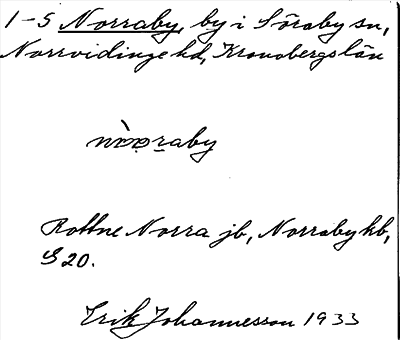 1-5 Norraby, by i Söraby sn,
Norrvidinge hd, Kronobergs län
Rottne Norra jb, Norraby hb,
S 20.
Erik Johannesson 1933